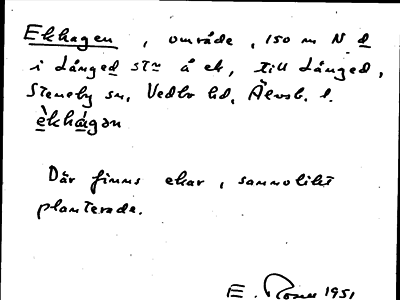 Ekhagen, område, 150 m N d
i Långed stn å ek, till Långed,
Steneby sn, Vedbo hd, Älvsb. l.
èkhágən
Där finns ekar, sannolikt
planterade.
E. 1951